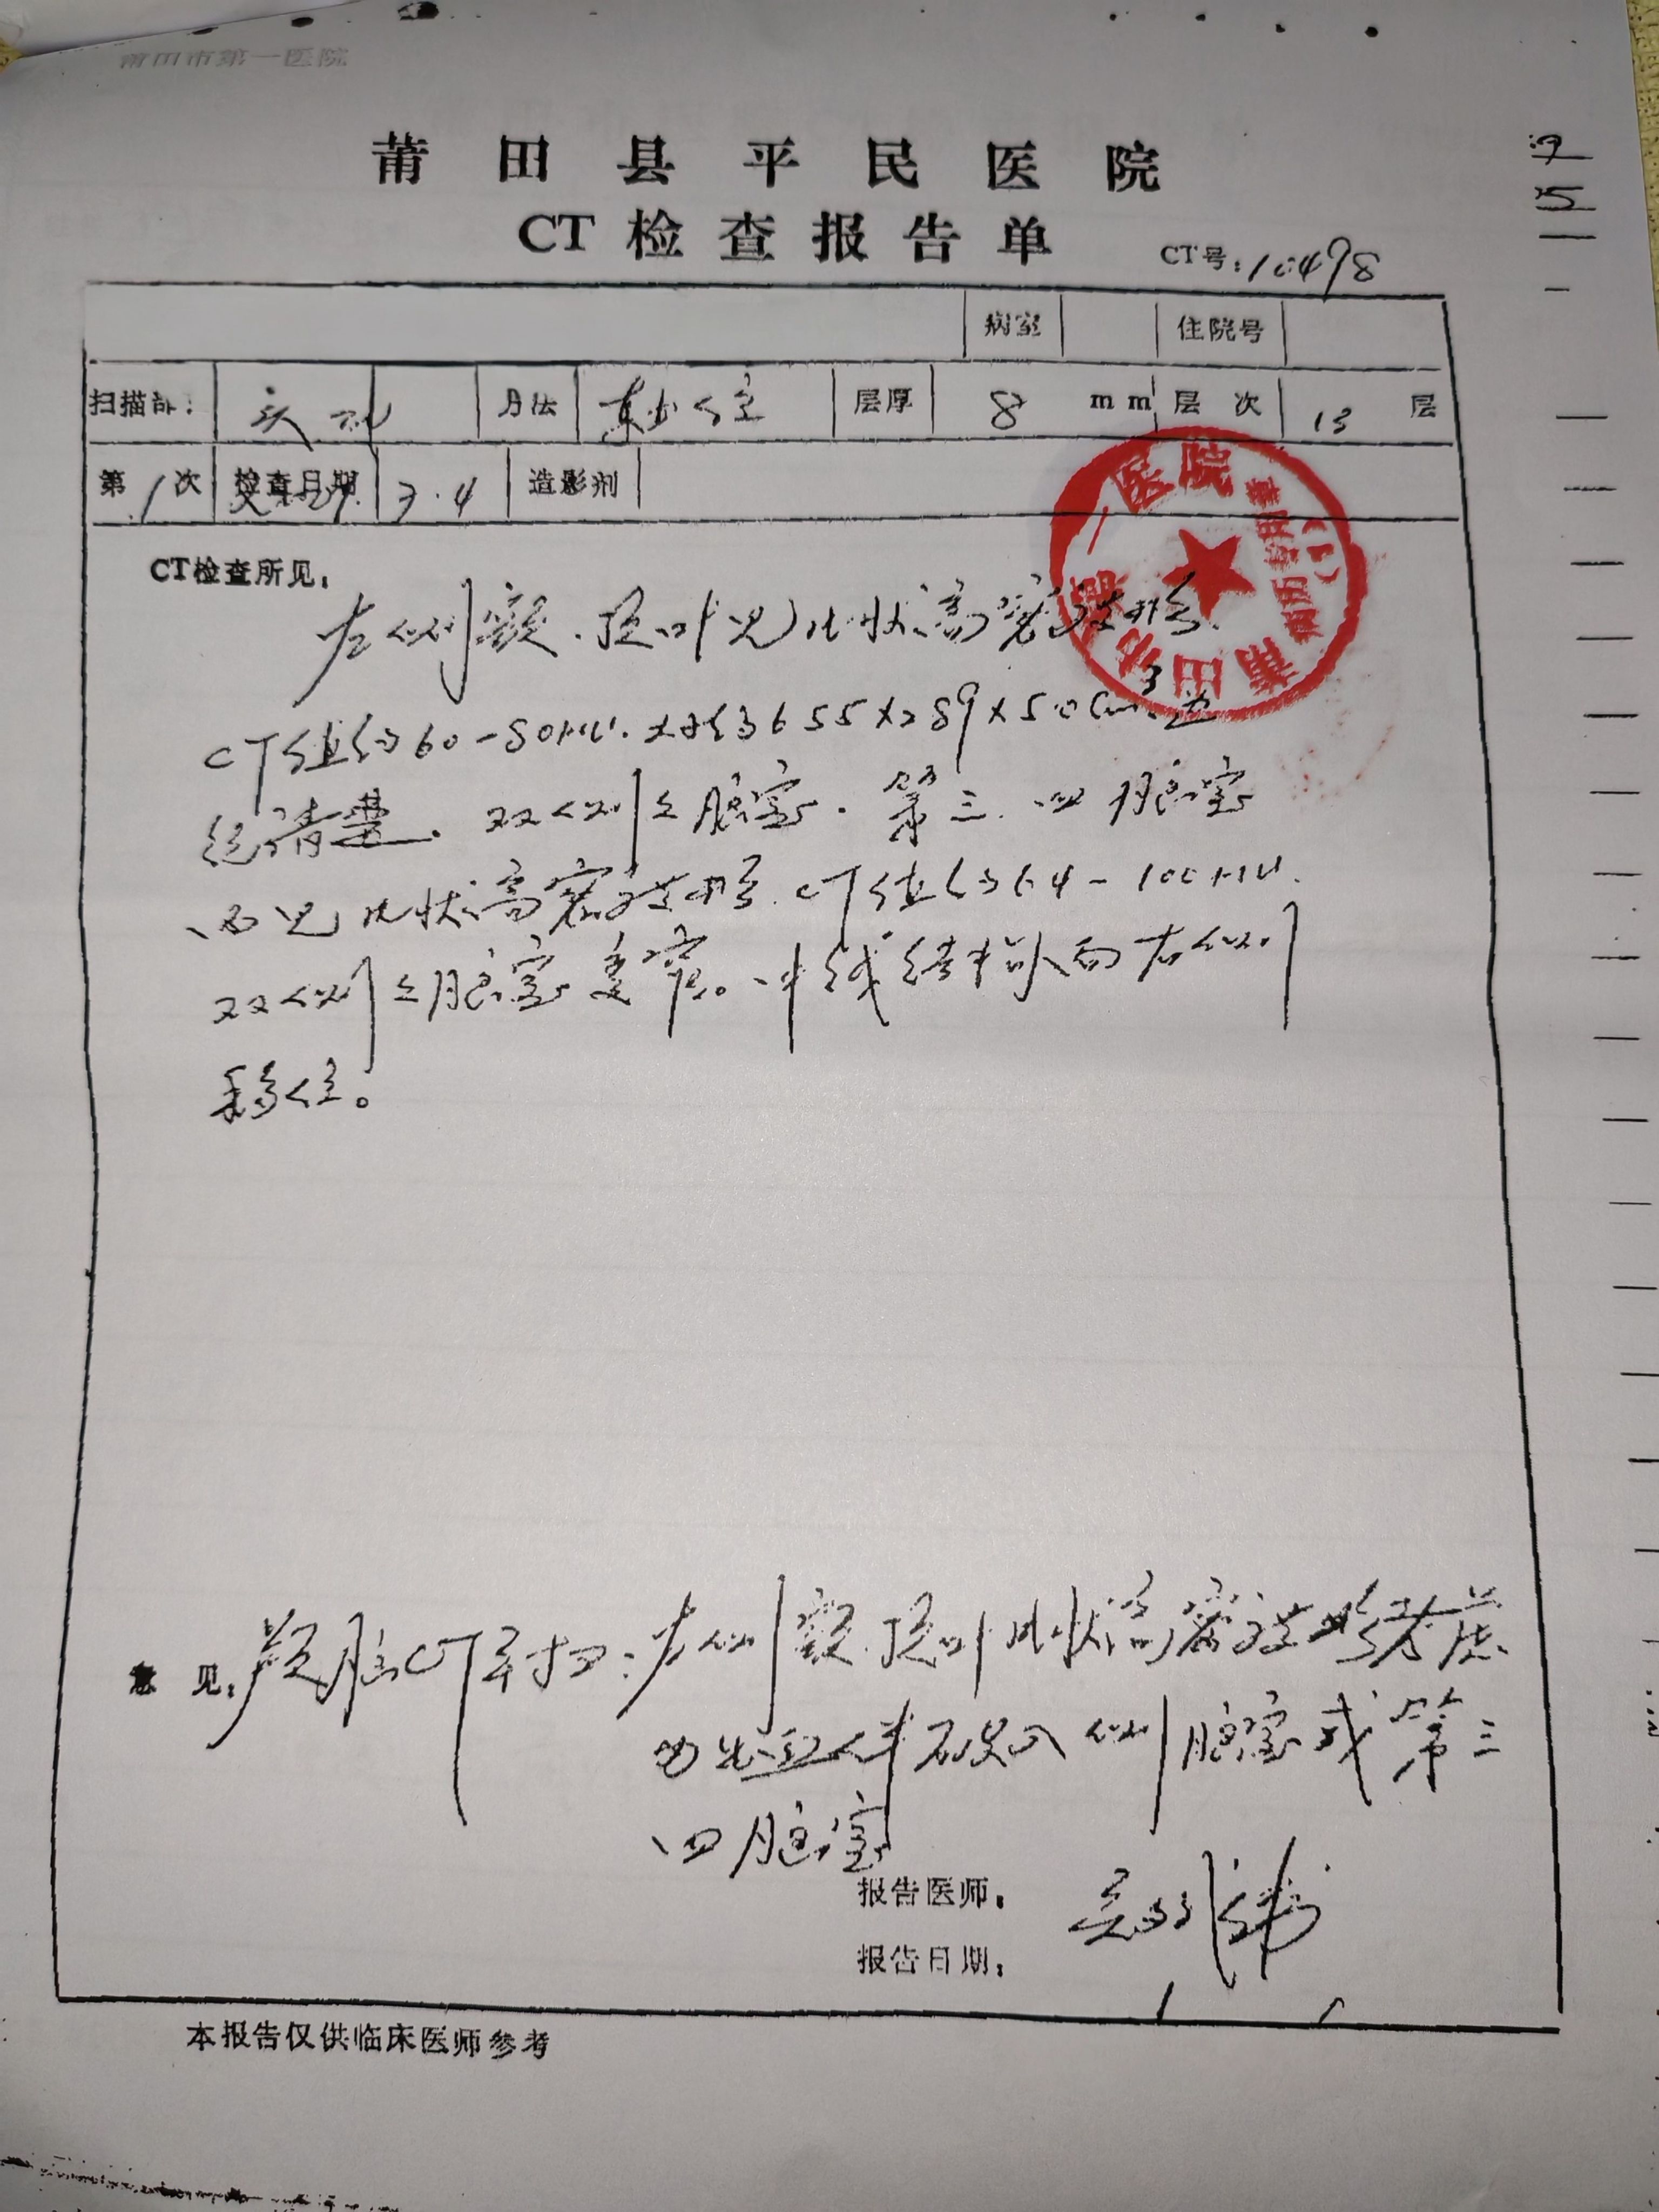 莆田市第一医院
莆田县平民医院
CT检查报告单
CT号:10498
病室 住院号
扫描部: 头颅 方法 轴位 层厚 8 mm 层次 13 层
第1次 检查日期 3.4 造影剂
CT检查所见:
左侧额.顶叶见片状高密度影.
CT值约60-80HU.大小约6.55×2.89×5.0cm³.边
缘清楚.双侧脑室.第三.四脑室
内见片状高密度影.CT值约64-100HU.
双侧脑室变窄。中线结构向右侧
移位。
意见: 颅脑CT平扫:左侧额.顶叶片状高密度影考虑
出血伴破入侧脑室或第三
四脑室
报告医师:
报告日期:
本报告仅供临床医师参考